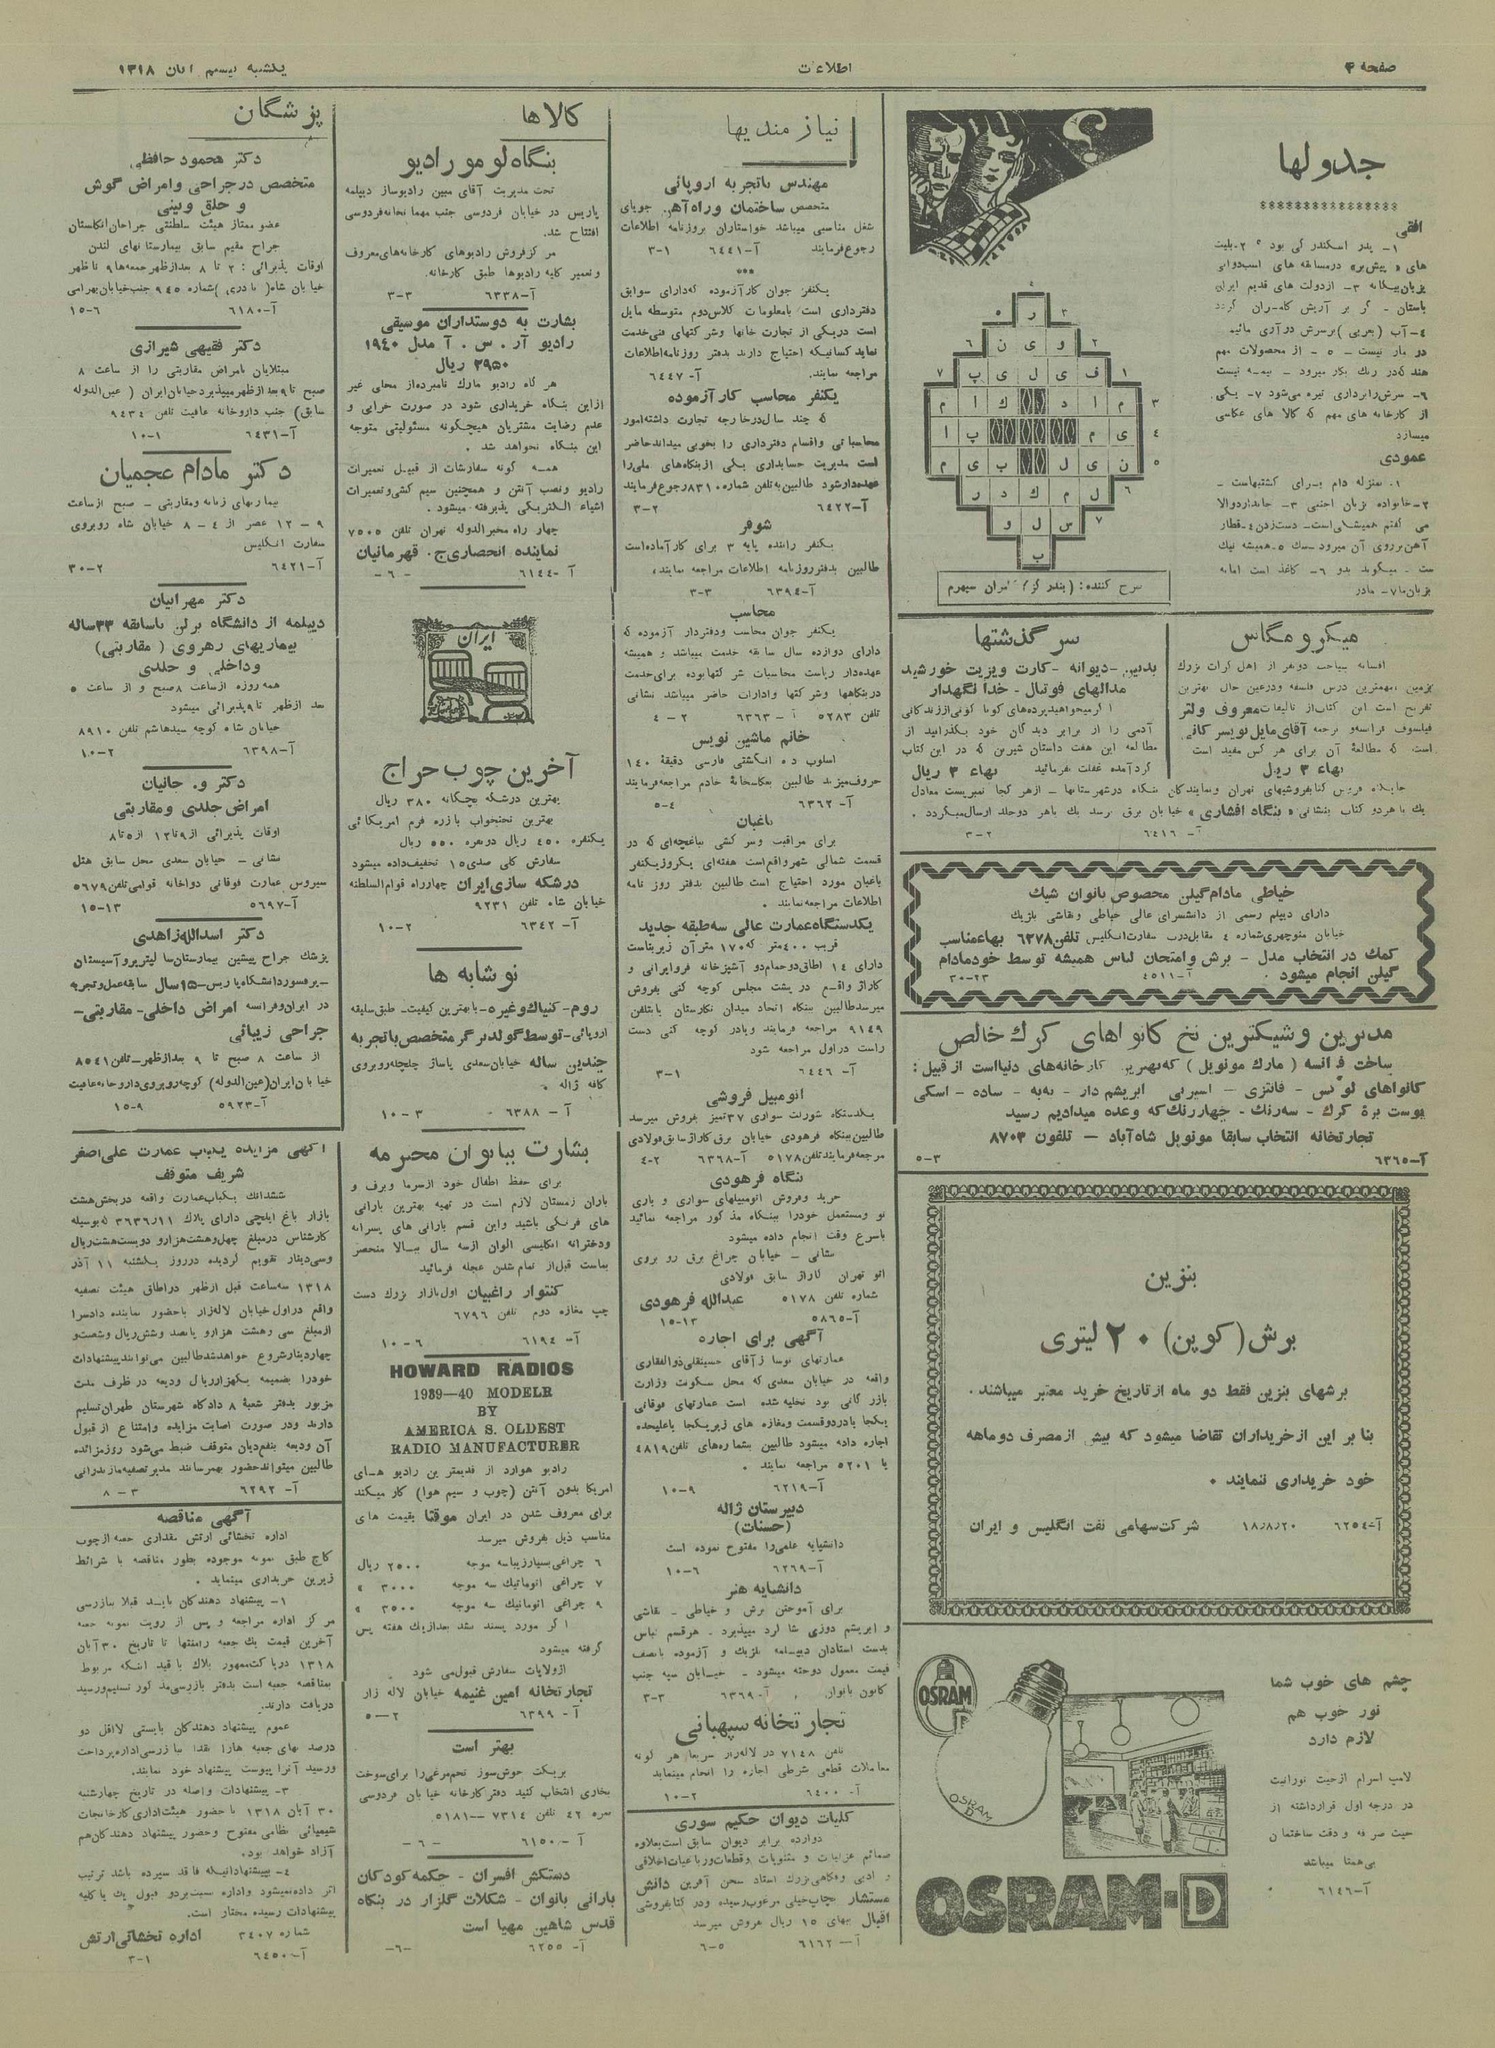 صفحه ۴
اطلاعات
یکشنبه بیستم آبان ۱۳۱۸
جدولها
افقی
۱- پدر اسکندر کی بود ؟ ۲- بلیت
های « پیش بر» درمسابقه های اسب دوانی
بزبان بیگانه ۳- ازدولت های قدیم ایران
باستان -
۴- آب (بعربی)
نیست - ۵ - از محصولات مهم
هند که در رنک بکار میرود -
۶- سرش را برداری تیره می‌شود ۷- یکی
از کارخانه های مهم که کالا های عکاسی
میسازد
عمودی
۲- خانواده بزبان اجنبی ۳-
می گفتم همیشگی است- دست زدن ۴- قطار
آهن بر روی آن میرود- سک ۵- همیشه نیک
میگویند بدو ۶- کاغذ است اما به
بزبان ما ۷- مادر
میکرومگاس
افسانه سیاحت دو نفر از اهل کرات بزرك
بزمین، مهمترین درس فلسفه و درعین حال بهترین
تفریح است این کتاب از تالیفات معروف ولتر
فیلسوف فرانسه و ترجمه آقای
است که مطالعهٔ آن برای هر کس مفید است
بهاء ۳ ریال
سرگذشتها
بدبین -دیوانه -کارت ویزیت خورشید
مدالهای فوتبال - خدا نگهدار
اگر میخواهید پرده‌های گوناگونی از زندگانی
آدمی را از برابر دیدگان خود بگذرانید از
مطالعه این هفت داستان شیرین که در این کتاب
گرد آمده غفلت نفرمائید بهاء ۳ ریال
یك یا هر دو کتاب بنشانی « بنگاه افشاری » خیابان برق
آ- ۶۴۱۶ ۲-۳
خیاطی مادام گیلن مخصوص بانوان شیك
دارای دیپلم رسمی از دانشسرای عالی خیاطی و نقاشی بلژیك
خیابان منوچهری شماره ۴ مقابل درب سفارت انگلیس تلفن ۶۳۷۸ بهاء مناسب
کمك در انتخاب مدل - برش و امتحان لباس همیشه توسط خود مادام
گیلن انجام میشود آ-۴۵۱۱ ۲۳-۳۰
مدرن‌ترین و شیکترین نخ کانواهای کرك خالص
ساخت فرانسه ( مارك مونوپل ) که بهترین کارخانه‌های دنیا است از قبیل :
کانواهای لوکس - فانتزی - اسپرتی ابریشم دار - به‌به - ساده - اسکی
پوست بره کرك - سه‌رنك - چهاررنك که وعده میدادیم رسید
تجارتخانه انتخاب سابقا مونوپل شاه‌آباد - تلفون ۸۷۰۳
آ-۶۳۶۵ ۳-۵
بنزین
برش (کوپن) ۲۰ لیتری
برشهای بنزین فقط دو ماه از تاریخ خرید معتبر میباشند .
بنا بر این از خریداران تقاضا میشود که بیش از مصرف دوماهه
خود خریداری ننمایند .
آ-۶۲۵۴ ۱۸/۸/۲۰ شرکت سهامی نفت انگلیس و ایران
چشم های خوب شما
نور خوب هم
لازم دارد
لامپ اسرام از حیث نورانیت
در درجه اول قرار داشته از
حیث صرفه و دقت ساختمان
بی‌همتا میباشد
آ-۶۱۴۶
OSRAM
OSRAM D
OSRAM-D
نیازمندیها
مهندس با تجربه اروپائی
متخصص ساختمان و راه‌آهن جویای
شغل مناسبی میباشد خواستاران بروزنامه اطلاعات
رجوع فرمایند آ-۶۴۴۱ ۱-۳
***
یکنفر جوان کارآزموده که دارای سوابق
دفترداری است با معلومات کلاس دوم متوسطه مایل
است در یکی از تجارتخانها و شرکتهای فنی خدمت
نماید کسانیکه احتیاج دارند بدفتر روزنامه اطلاعات
مراجعه نمایند. آ-۶۴۴۷
یکنفر محاسب کارآزموده
که چند سال در خارجه تجارت داشته امور
محاسباتی و اقسام دفترداری را بخوبی میداند حاضر
است مدیریت حسابداری یکی از بنگاه‌های ملی را
عهده‌دار شود طالبین به تلفن شماره ۸۳۱۰ رجوع فرمایند
آ-۶۴۲۲ ۲-۳
شوفر
یکنفر راننده پایه ۳ برای کار آماده است
طالبین بدفتر روزنامه اطلاعات مراجعه نمایند،
آ-۶۳۹۴ ۳-۳
محاسب
یکنفر جوان محاسب و دفتردار آزموده که
دارای دوازده سال سابقه خدمت میباشد و همیشه
عهده‌دار ریاست محاسبات شرکتها بوده برای خدمت
در بنگاهها و شرکتها و ادارات حاضر میباشد نشانی
تلفن ۵۲۸۳ آ - ۶۳۶۳ ۲ - ۴
خانم ماشین نویس
اسلوب ده انگشتی فارسی دقیقهٔ ۱۴۰
حرف میزند طالبین بعکاسخانهٔ خادم مراجعه فرمایند
آ- ۶۳۶۲ ۴-۵
باغبان
برای مراقبت و سرکشی باغچه‌ای که در
قسمت شمالی شهر واقع است هفته‌ای یکروز یکنفر
باغبان مورد احتیاج است طالبین بدفتر روزنامه
اطلاعات مراجعه نمایند .
یکدستگاه عمارت عالی سه طبقه جدید
قریب ۴۰۰ متر که ۱۷۰ متر آن زیر بنا است
دارای ۱۴ اطاق دو حمام دو آشپزخانه فر و ایرانی و
گاراژ واقع در پشت مجلس کوچه کتبی بفروش
میرسد طالبین بنگاه اتحاد میدان نگارستان یا تلفن
۹۱۴۹ مراجعه فرمایند و یا در کوچه کتبی دست
راست در اول مراجعه شود
آ- ۶۴۴۶ ۱-۳
اتومبیل فروشی
یکدستگاه شورلت سواری ۳۷ تمیز بفروش میرسد
طالبین بنگاه فرهودی خیابان برق گاراژ سابق فولادی
مراجعه فرمایند تلفن ۵۱۷۸ آ-۶۳۶۸ ۲-۴
بنگاه فرهودی
خرید و فروش اتومبیلهای سواری و باری
نو و مستعمل خود را ببنگاه مذکور مراجعه نمائید
باسرع وقت انجام داده میشود
نشانی - خیابان چراغ برق روبروی
اتو تهران گاراژ سابق فولادی
شماره تلفن ۵۱۷۸ عبدالله فرهودی
آ-۵۸۶۵ ۱۳-۱۵
آگهی برای اجاره
عمارتهای نوساز آقای حسینقلی ذوالفقاری
واقعه در خیابان سعدی که محل سکونت وزارت
بازرگانی بود تخلیه شده است عمارتهای فوقانی
یکجا یا در دو قسمت و مغازه های زیر یکجا یا علیحده
اجاره داده میشود طالبین بشماره‌های تلفن ۴۸۱۹
یا ۵۲۰۱ مراجعه نمایند .
آ-۶۲۱۹ ۹-۱۰
دبیرستان ژاله
(حسنات)
دانشپایه علمی را مفتوح نموده است
آ-۶۲۶۹ ۶-۱۰
دانشپایه هنر
برای آموختن برش و خیاطی - نقاشی
و ابریشم دوزی شاگرد میپذیرد . هر قسم لباس
بدست استادان دیپلمه بلژیك و آزموده با نصف
قیمت معمول دوخته میشود - خیابان سپه جنب
کانون بانوان. آ-۶۳۶۹ ۳-۳
تجارتخانه سپهبانی
تلفن ۷۱۴۸ در لاله‌زار سریعا هر گونه
معاملات قطعی شرطی اجاره را انجام مینماید
آ- ۶۴۰۰ ۲-۱۰
کلیات دیوان حکیم سوری
دوازده برابر دیوان سابق است بعلاوه
ضمائم غزلیات و مثنویات و قطعات و رباعیات اخلاقی
و ادبی و فکاهی بزرك استاد سخن آفرین دانش
مستشار بچاپ خیلی مرغوب رسیده و در کتابفروشی
اقبال ببهای ۱۵ ریال فروش میرسد
آ- ۶۱۶۲ ۵-۶
کالاها
بنگاه لومو رادیو
تحت مدیریت آقای مبین رادیوساز دیپلمه
پاریس در خیابان فردوسی جنب مهمانخانه فردوسی
افتتاح شد.
مرکز فروش رادیوهای کارخانه‌های معروف
و تعمیر کلیه رادیوها طبق کارخانه.
آ-۶۳۳۸ ۳-۳
بشارت به دوستداران موسیقی
رادیو آر . س . آ مدل ۱۹۴۰
۲۹۵۰ ریال
هر گاه رادیو مارك نامبرده از محلی غیر
از این بنگاه خریداری شود در صورت خرابی و
عدم رضایت مشتریان هیچگونه مسئولیتی متوجه
این بنگاه نخواهد شد .
همه گونه سفارشات از قبیل تعمیرات
رادیو و نصب آنتن و همچنین سیم کشی و تعمیرات
اشیاء الکتریکی پذیرفته میشود.
چهار راه مخبرالدوله تهران تلفن ۷۰۰۵
نماینده انحصاری ج. قهرمانیان
آ -۶۱۴۴ - ۶ -
ایران
آخرین چوب حراج
بهترین درشکه بچگانه ۳۸۰ ریال
بهترین تختخواب بازره فرم امریکائی
یکنفره ۴۵۰ ریال دونفره ۵۵۰ ریال
سفارش کلی صدی ۱۵ تخفیف داده میشود
درشکه سازی ایران چهارراه قوام السلطنه
خیابان شاه تلفن ۹۲۳۱
آ- ۶۳۴۲ ۲-۱۰
نوشابه ها
روم - کنیاك و غیره - با بهترین کیفیت - طبق سابقه
اروپائی - توسط گولدبرگر متخصص با تجربه
چندین ساله خیابان سعدی پاساژ چلچله روبروی
کافه ژاله .
آ - ۶۳۸۸ ۳ - ۱۰
بشارت ببانوان محترمه
برای حفظ اطفال خود از سرما و برف و
باران زمستان لازم است در تهیه بهترین بارانی
های فرنگی باشید و این قسم بارانی های پسرانه
و دخترانه انگلیسی الوان از سه سال ببالا منحصر
بماست قبل از تمام شدن عجله فرمائید
کنتوار راغبیان اول بازار بزرك دست
چپ مغازه دوم تلفن ۶۷۹۶
آ- ۶۱۹۴ ۶ - ۱۰
HOWARD RADIOS
1939—40 MODELR
BY
AMERICA S. OLDEST
RADIO MANUFACTURER
رادیو هوارد از قدیمترین رادیو های
امریکا بدون آنتن (چوب و سیم هوا) کار میکند
برای معروف شدن در ایران موقتا بقیمت های
مناسب ذیل بفروش میرسد
۶ چراغی بسیار زیبا سه موجه ۲۵۰۰ ریال
۷ چراغی اتوماتیك سه موجه ۳۰۰۰ «
۹ چراغی اتوماتیك سه موجه ۳۵۰۰ «
اگر مورد پسند نشد بعد از یك هفته پس
گرفته میشود
از ولایات سفارش قبول می شود
تجارتخانه امین غنیمه خیابان لاله زار
آ - ۶۳۹۹ ۲-۵
بهتر است
بریکت خوش‌سوز تخم‌مرغی را برای سوخت
بخاری انتخاب کنید دفتر کارخانه خیابان فردوسی
نمره ۴۲ تلفن ۷۳۱۴ - ۵۱۸۱
آ - ۶۱۵۰ - ۶ -
دستکش افسران - چکمه کودکان
بارانی بانوان - شکلات گلزار در بنگاه
قدس شاهین مهیا است
آ- ۶۲۵۵ -۶-
پزشگان
دکتر محمود حافظی
متخصص در جراحی و امراض گوش
و حلق و بینی
عضو ممتاز هیئت سلطنتی جراحان انگلستان
جراح مقیم سابق بیمارستانهای لندن
اوقات پذیرائی : ۲ تا ۸ بعد از ظهر جمعه‌ها ۹ تا ظهر
خیابان شاه ( نادری ) شماره ۹۴۵ جنب خیابان بهرامی
آ-۶۱۸۰ ۶-۱۵
دکتر فقیهی شیرازی
مبتلایان بامراض مقاربتی را از ساعت ۸
صبح تا ۹ بعد از ظهر میپذیرد خیابان ایران ( عین الدوله
سابق) جنب داروخانه عافیت تلفن ۹۴۳۴
آ-۶۴۳۱ ۱-۱۰
دکتر مادام عجمیان
بیماریهای زنانه و مقاربتی - صبح از ساعت
۹ - ۱۲ عصر از ۴ - ۸ خیابان شاه روبروی
سفارت انگلیس
آ-۶۴۲۱ ۲-۳۰
دکتر مهرابیان
دیپلمه از دانشگاه برلن با سابقه ۳۳ ساله
بیماریهای زهروی ( مقاربتی )
و داخلی و جلدی
همه روزه از ساعت ۸ صبح و از ساعت ۵
بعد از ظهر تا ۹ پذیرائی میشود
خیابان شاه کوچه سید هاشم تلفن ۸۹۱۰
آ-۶۳۹۸ ۲-۱۰
دکتر و. خانیان
امراض جلدی و مقاربتی
اوقات پذیرائی از ۹ تا ۱۲ از ۵ تا ۸
نشانی - خیابان سعدی محل سابق هتل
سیروس عمارت فوقانی دواخانه قوامی تلفن ۵۶۷۹
آ-۵۶۹۷ ۱۳-۱۵
دکتر اسدالله زاهدی
پزشك جراح پیشین بیمارستان سالپتریر و آسیستان
پرفسور دانشگاه پاریس - ۱۵ سال سابقه عمل و تجربه
در ایران و فرانسه امراض داخلی - مقاربتی -
جراحی زیبائی
از ساعت ۸ صبح تا ۹ بعد از ظهر - تلفن ۸۵۴۱
خیابان ایران (عین الدوله) کوچه روبروی داروخانه عافیت
آ-۵۹۲۳ ۹-۱۵
آگهی مزایده یکباب عمارت علی اصغر
شریف متوقف
ششدانك یکباب عمارت واقعه در بخش هشت
بازار باغ ایلچی دارای پلاك ۳۶۳۶/۱۱ که بوسیله
کارشناس در مبلغ چهل و هشت هزار و دویست هشت ریال
و سی دینار تقویم گردیده در روز یکشنبه ۱۱ آذر
۱۳۱۸ سه ساعت قبل از ظهر در اطاق هیئت تصفیه
واقع در اول خیابان لاله‌زار با حضور نماینده دادسرا
از مبلغ سی و هشت هزار و پانصد و شش ریال و شصت و
چهار دینار شروع خواهد شد طالبین می توانند پیشنهادات
خود را بضمیمه یکهزار ریال ودیعه در ظرف مدت
مزبور بدفتر شعبهٔ ۸ دادگاه شهرستان طهران تسلیم
دارند و در صورت اصابت مزایده و امتناع از قبول
آن ودیعه بنفع دیان متوقف ضبط می‌شود روز مزائده
طالبین میتوانند حضور بهمرسانند مدیر تصفیه مازندرانی
آ- ۶۲۹۲ ۳ - ۸
آگهی مناقصه
اداره نخشائی ارتش مقداری جعبه از چوب
کاج طبق نمونه موجوده بطور مناقصه با شرائط
زیرین خریداری مینماید .
۱- پیشنهاد دهندگان باید قبلا ببازرسی
مرکز اداره مراجعه و پس از رویت نمونه جعبه
آخرین قیمت یك جعبه را منتها تا تاریخ ۳۰ آبان
۱۳۱۸ در پاکت ممهور بلاك با قید اینکه مربوط
بمناقصه جعبه است بدفتر بازرسی مذکور تسلیم و رسید
دریافت دارند.
عموم پیشنهاد دهندگان بایستی لااقل دو
درصد بهای جعبه ها را نقدا ببازرسی اداره پرداخت
و رسید آنرا پیوست پیشنهاد خود نمایند.
۳- پیشنهادات واصله در تاریخ چهارشنبه
۳۰ آبان ۱۳۱۸ با حضور هیئت اداری کارخانجات
شیمیائی نظامی مفتوح و حضور پیشنهاد دهندگان هم
آزاد خواهد بود.
۴- بپیشنهاداتیکه فاقد سپرده باشد ترتیب
اثر داده نمیشود و اداره نسبت برد و قبول یك یا کلیه
پیشنهادات رسیده مختار است.
شماره ۳۴۰۷ اداره نخشائی ارتش
آ-۶۴۵۰ ۱-۳